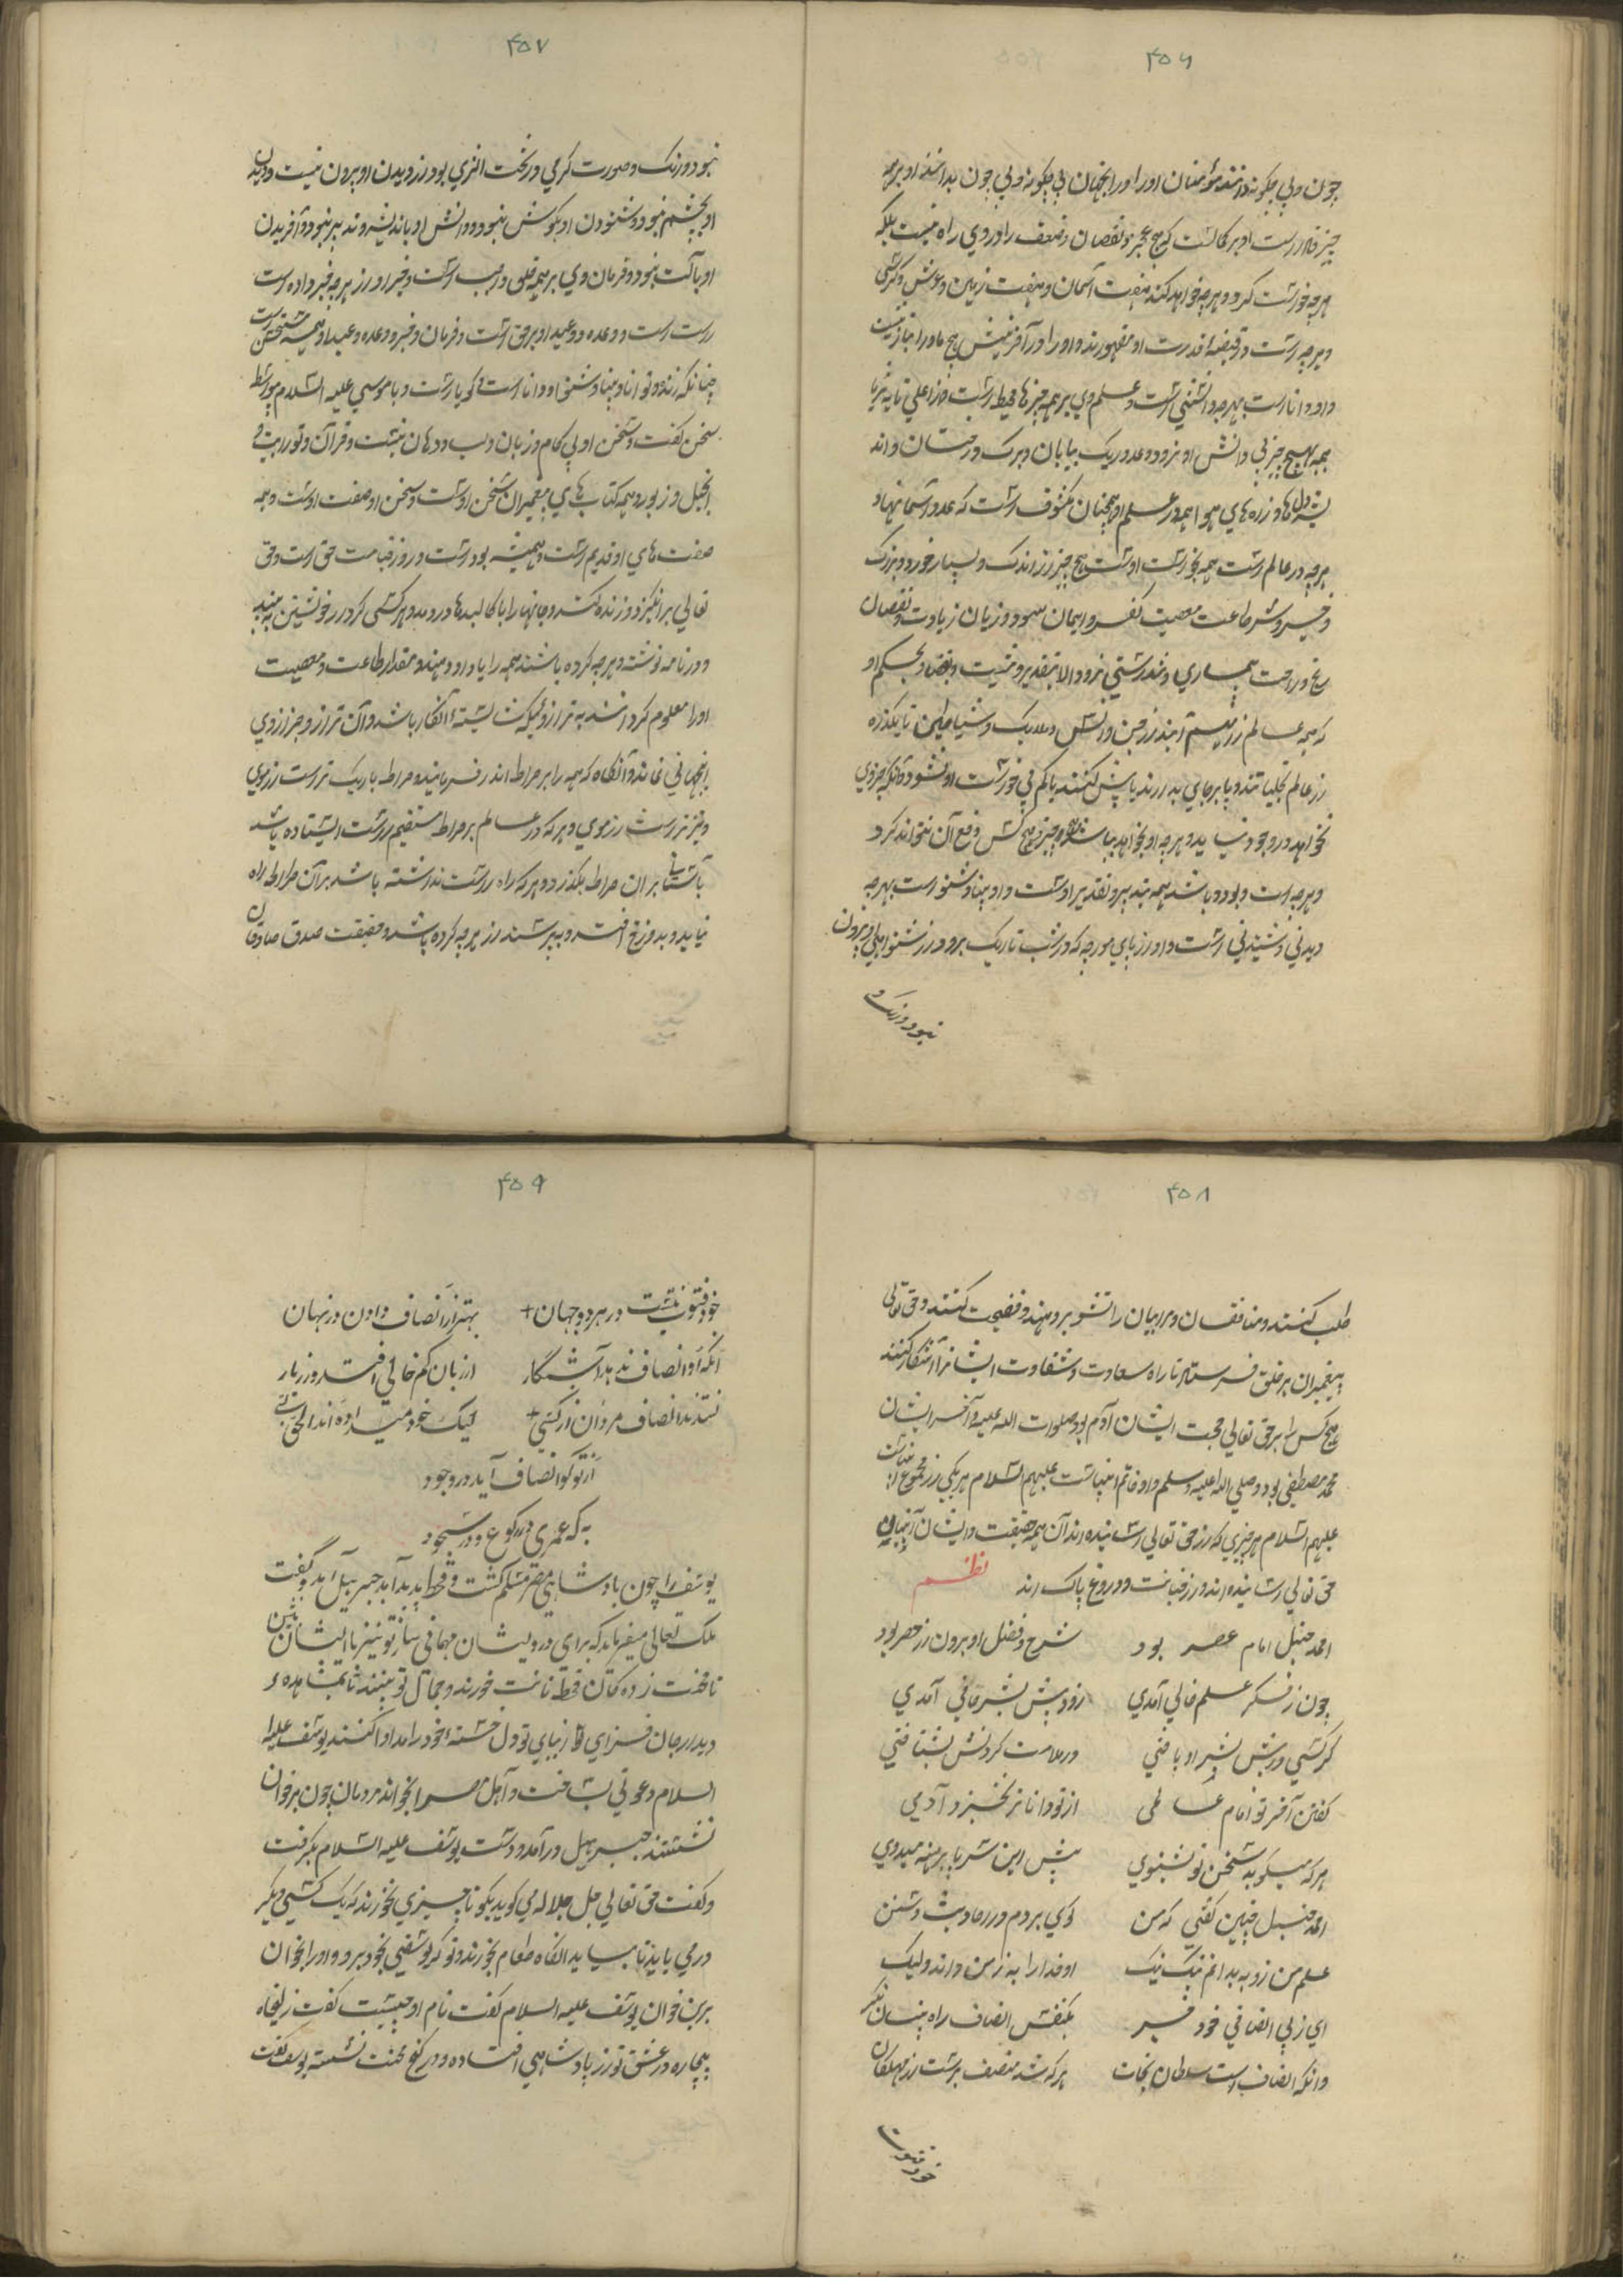 ۴۵۶
چون و بی چگونه دانسته مؤمنان او را در انجهان بی چگونه و بی چون بدانند او بر همه
چیز قادر است او بر کمالست که هیچ عجز و نقصان و ضعف را در وی راه نیست بلکه
هرچه خواست کرد و هرچه خواهد کند هفت آسمان و هفت زمین و عرش و کرسی
و هرچه هست در قبضه قدرت او مقهورند و او را در آفرینش هیچ یاور انباز نیست
و او دانا است بهرچه دانستنی است و علم وی بر همه چیزها محیط است از اعلی تا به ثریا
همه هیچ چیز بی دانش او نرود و عدد ریگ بیابان و برگ درختان و اند
یشه دلها و ذره های هوا همه در علم او همچنان مکشوف است که عدد آسمانها و
هرچه در عالم است همه بخواست اوست هیچ چیز از اندک و بسیار خورد و بزرگ
و خیر و شر طاعت معصیت کفر و ایمان سود و زیان زیادت و نقصان
رنج و راحت بیماری و تندرستی نرود الا بتقدیر و مشیت و بقضا و بحکم او
که همه عالم فراهم آیند از جن و انس و ملایک و شیاطین تا یکذره
از عالم بجنبانند و یا بر جای بدارند یا بیش کنند یا کم بی خواست او نشود و آنکه جز وی
نخواهد در وجود نیاید و هرچه او بخواهد بباشد و هیچ چیز و هیچ کس دفع آن نتواند کرد
و هرچه است و بود و باشد همه بتدبیر و تقدیر اوست و او بینا و شنوا است بهرچه
دیدنی و شنیدنی است و آواز پای مورچه که در شب تاریک برود از شنوایی او بیرون
نبود و رنگ و
۴۵۷
نبود و رنگ و صورت کرمی در تحت الثری بود از دیدن او بیرون نیست و دیدن
او بچشم نبود و شنودن او بگوش نبود و دانش او باندیشه و تدبیر نبود و آفریدن
او بآلت نبود و فرمان وی بر همه خلق واجب است و خبر او از هرچه خبر داده است
راست است و وعده و وعید او بر حق است و فرمان و خبر و وعده و وعید او همه سخن است
چنانکه زنده و توانا و بینا و شنوا و دانا است گویا است و با موسی علیه السلام بیواسطه
سخن گفت و سخن او بی کام و زبان و لب و دهان نیست و قرآن و توریت و
انجیل و زبور و همه کتاب های پیغمبران سخن اوست و سخن او صفت اوست و همه
صفت های او قدیم است و همیشه بود است و روز قیامت حق است و حق
تعالی برانگیزد و زنده کند و جانها را با کالبدها در دهد و هر کسی کردار خویشتن به بیند
و در نامه نوشته و هرچه کرده باشند همه را یاد دهند و مقدار طاعت و معصیت
او را معلوم گرداند به ترازوئیکه شایسته آنکار باشد و آن ترازو جز ترازوی
اینجهانی نماند و آنگاه که همه را بر صراط اندر فرمایند و صراط باریک تر است از موی
و تیزتر است از موی و هر که در عالم بر صراط مستقیم راست ایستاده باشد
بآسانی بران صراط بگذرد و هر که راه راست نداشته باشد بر آن صراط راه
نیابد و بدوزخ افتد و بپرسند از هرچه کرده باشد و حقیقت صدق صادقان
۴۵۸
طلب کنند و منافقان و مرایان را تشویر دهند و فضیحت کنند و حق تعالی
پیغمبران بر خلق فرستاد تا راه سعادت و شقاوت ایشانرا آشکار کنند
هیچ کس را بر حق تعالی حجت ایشان آدم بود صلوات الله علیه و آخر ایشان
محمد مصطفی بود صلی الله علیه وسلم و او خاتم انبیاست علیهم السلام هریکی از مجموع انبیاست
علیهم السلام هر چیزی که از حق تعالی رسانیده اند آن همه حقیقت و ایشان آنچه از
حق تعالی رسانیده اند از خیانت و دروغ پاک اند
نظم
احمد حنبل امام عصر بود شرح و فضل او برون از حصر بود
چون ز فکر علم خالی آمدی زود پیش بشر حافی آمدی
گر کسی در پیش بشر او یافتی در ملامت کردنش بشتافتی
گفتی آخر تو امام عالمی از تو داناتر نخیزد آدمی
هر که میگوید سخن تو نشنوی پیش این سر پا برهنه میدوی
احمد حنبل چنین گفتی که من گوی بردم در احادیث و سنن
علم من زو به بدانم نیک نیک او خدا را به ز من داند ولیک
ای ز بی انصافی خود خبر یکنفس انصاف راه بینان نگر
وانکه انصاف است سلطان نجات هر که شد منصف برست از مهلکات
خود فتوت
۴۵۹
خود فتوت نیست در هر دو جهان + بهتر از انصاف دادن در نهان
آنکه او انصاف ندهد آشکار از زبان کم خالی افتد روزگار
نستدند انصاف مردان از کسی + لیک خود میداده اند الحق بسی
از تو گر انصاف آید در وجود
به که عمری در رکوع و در سجود
یوسف را چون بادشاهی مصر مسلم گشت و قحط پدید آمد جبرییل آمد و گفت
ملک تعالی میفرماید که برای درویشان مهمانی ساز تو نیز با ایشان بنشین
تا محنت زدهگان قحط نانت خورند و جمال تو بینند تا بمشاهدهء
دیدار جان فزای و از زیبای تو دل خسته خود را مداوا کنند یوسف علیه
السلام دعوتی بساخت و اهل مصر را بخواند مردمان چون بر خوان
نشستند جبرییل درآمد و دست یوسف علیه السلام بگرفت
و گفت حق تعالی جل جلاله می گوید بگو تا چیزی نخورند که یک کسی دیگر
در می یابد تا بیاید آنگاه طعام بخورند و تو که یوسفی بخود برو و او را بخوان
برین خوان یوسف علیه السلام گفت نام او چیست گفت زلیخاء
بیچاره در عشق تو از پادشاهی افتاده و در کنج محنت نشسته یوسف گفت